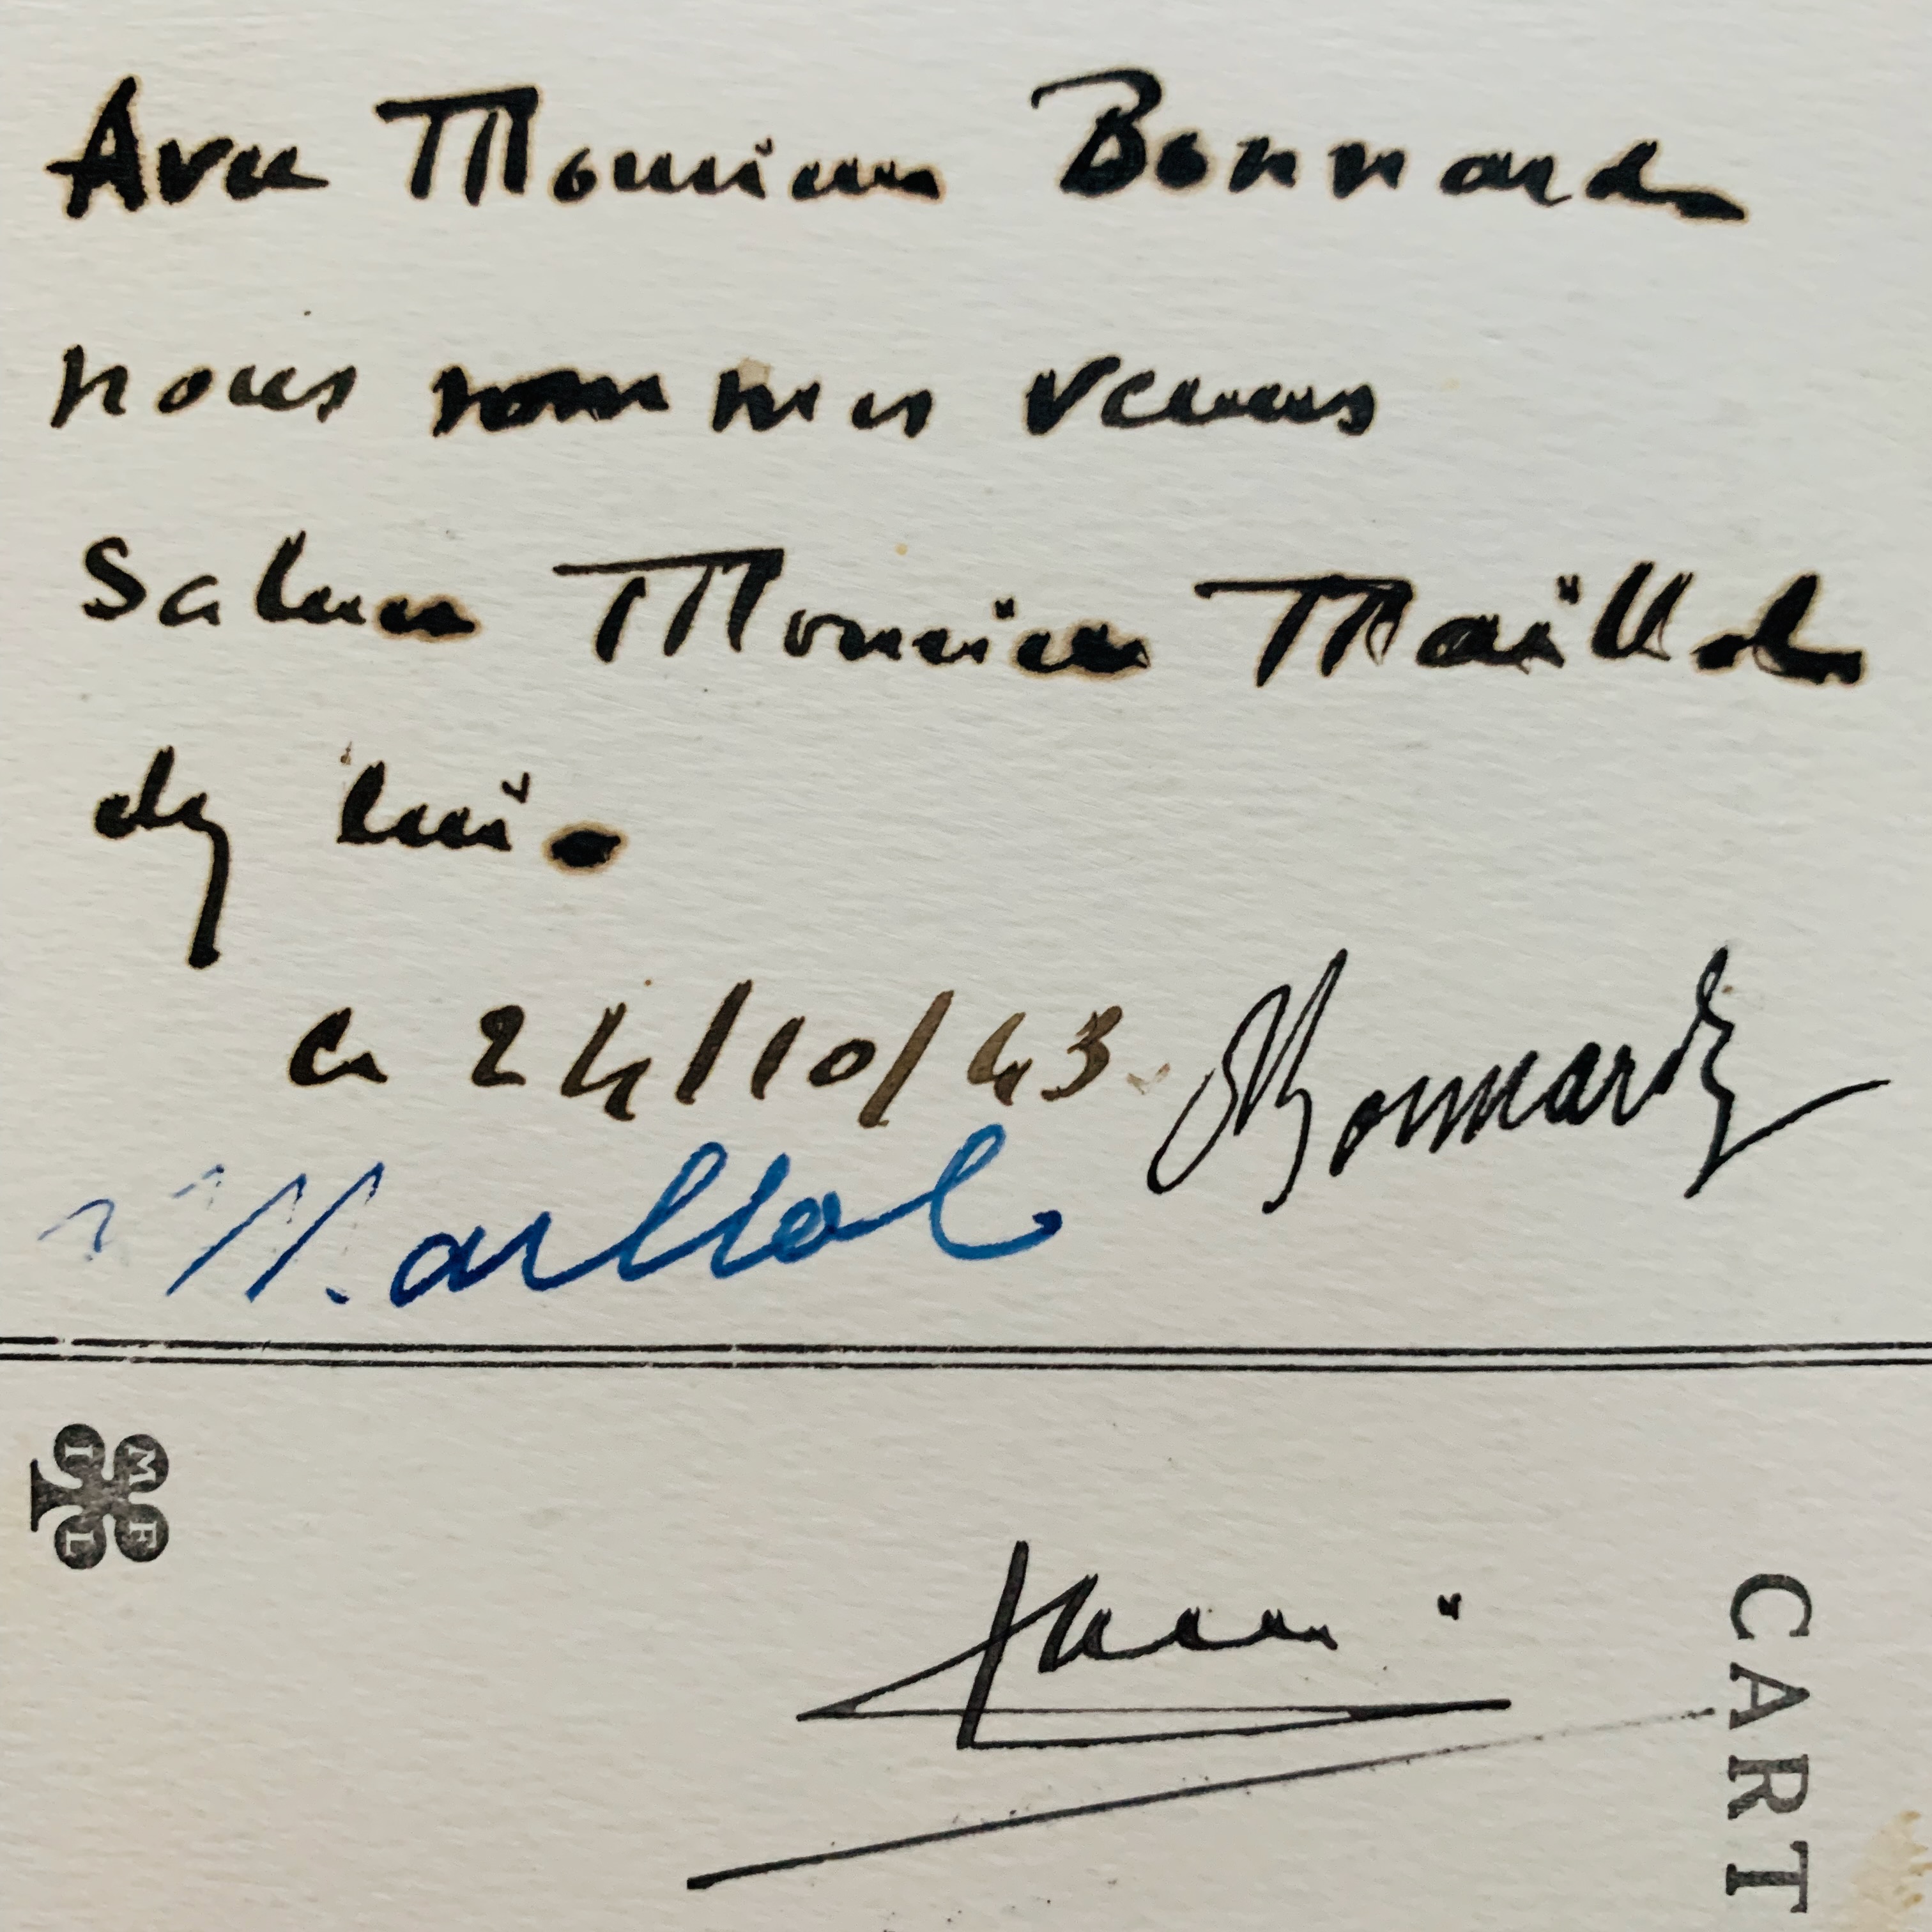 Avec Monsieur Bonnard
nous sommes venus
Saluer Monsieur Maillol
chez lui.
ce 24/10/43.
Bonnard
Maillol
IMP
L
CART